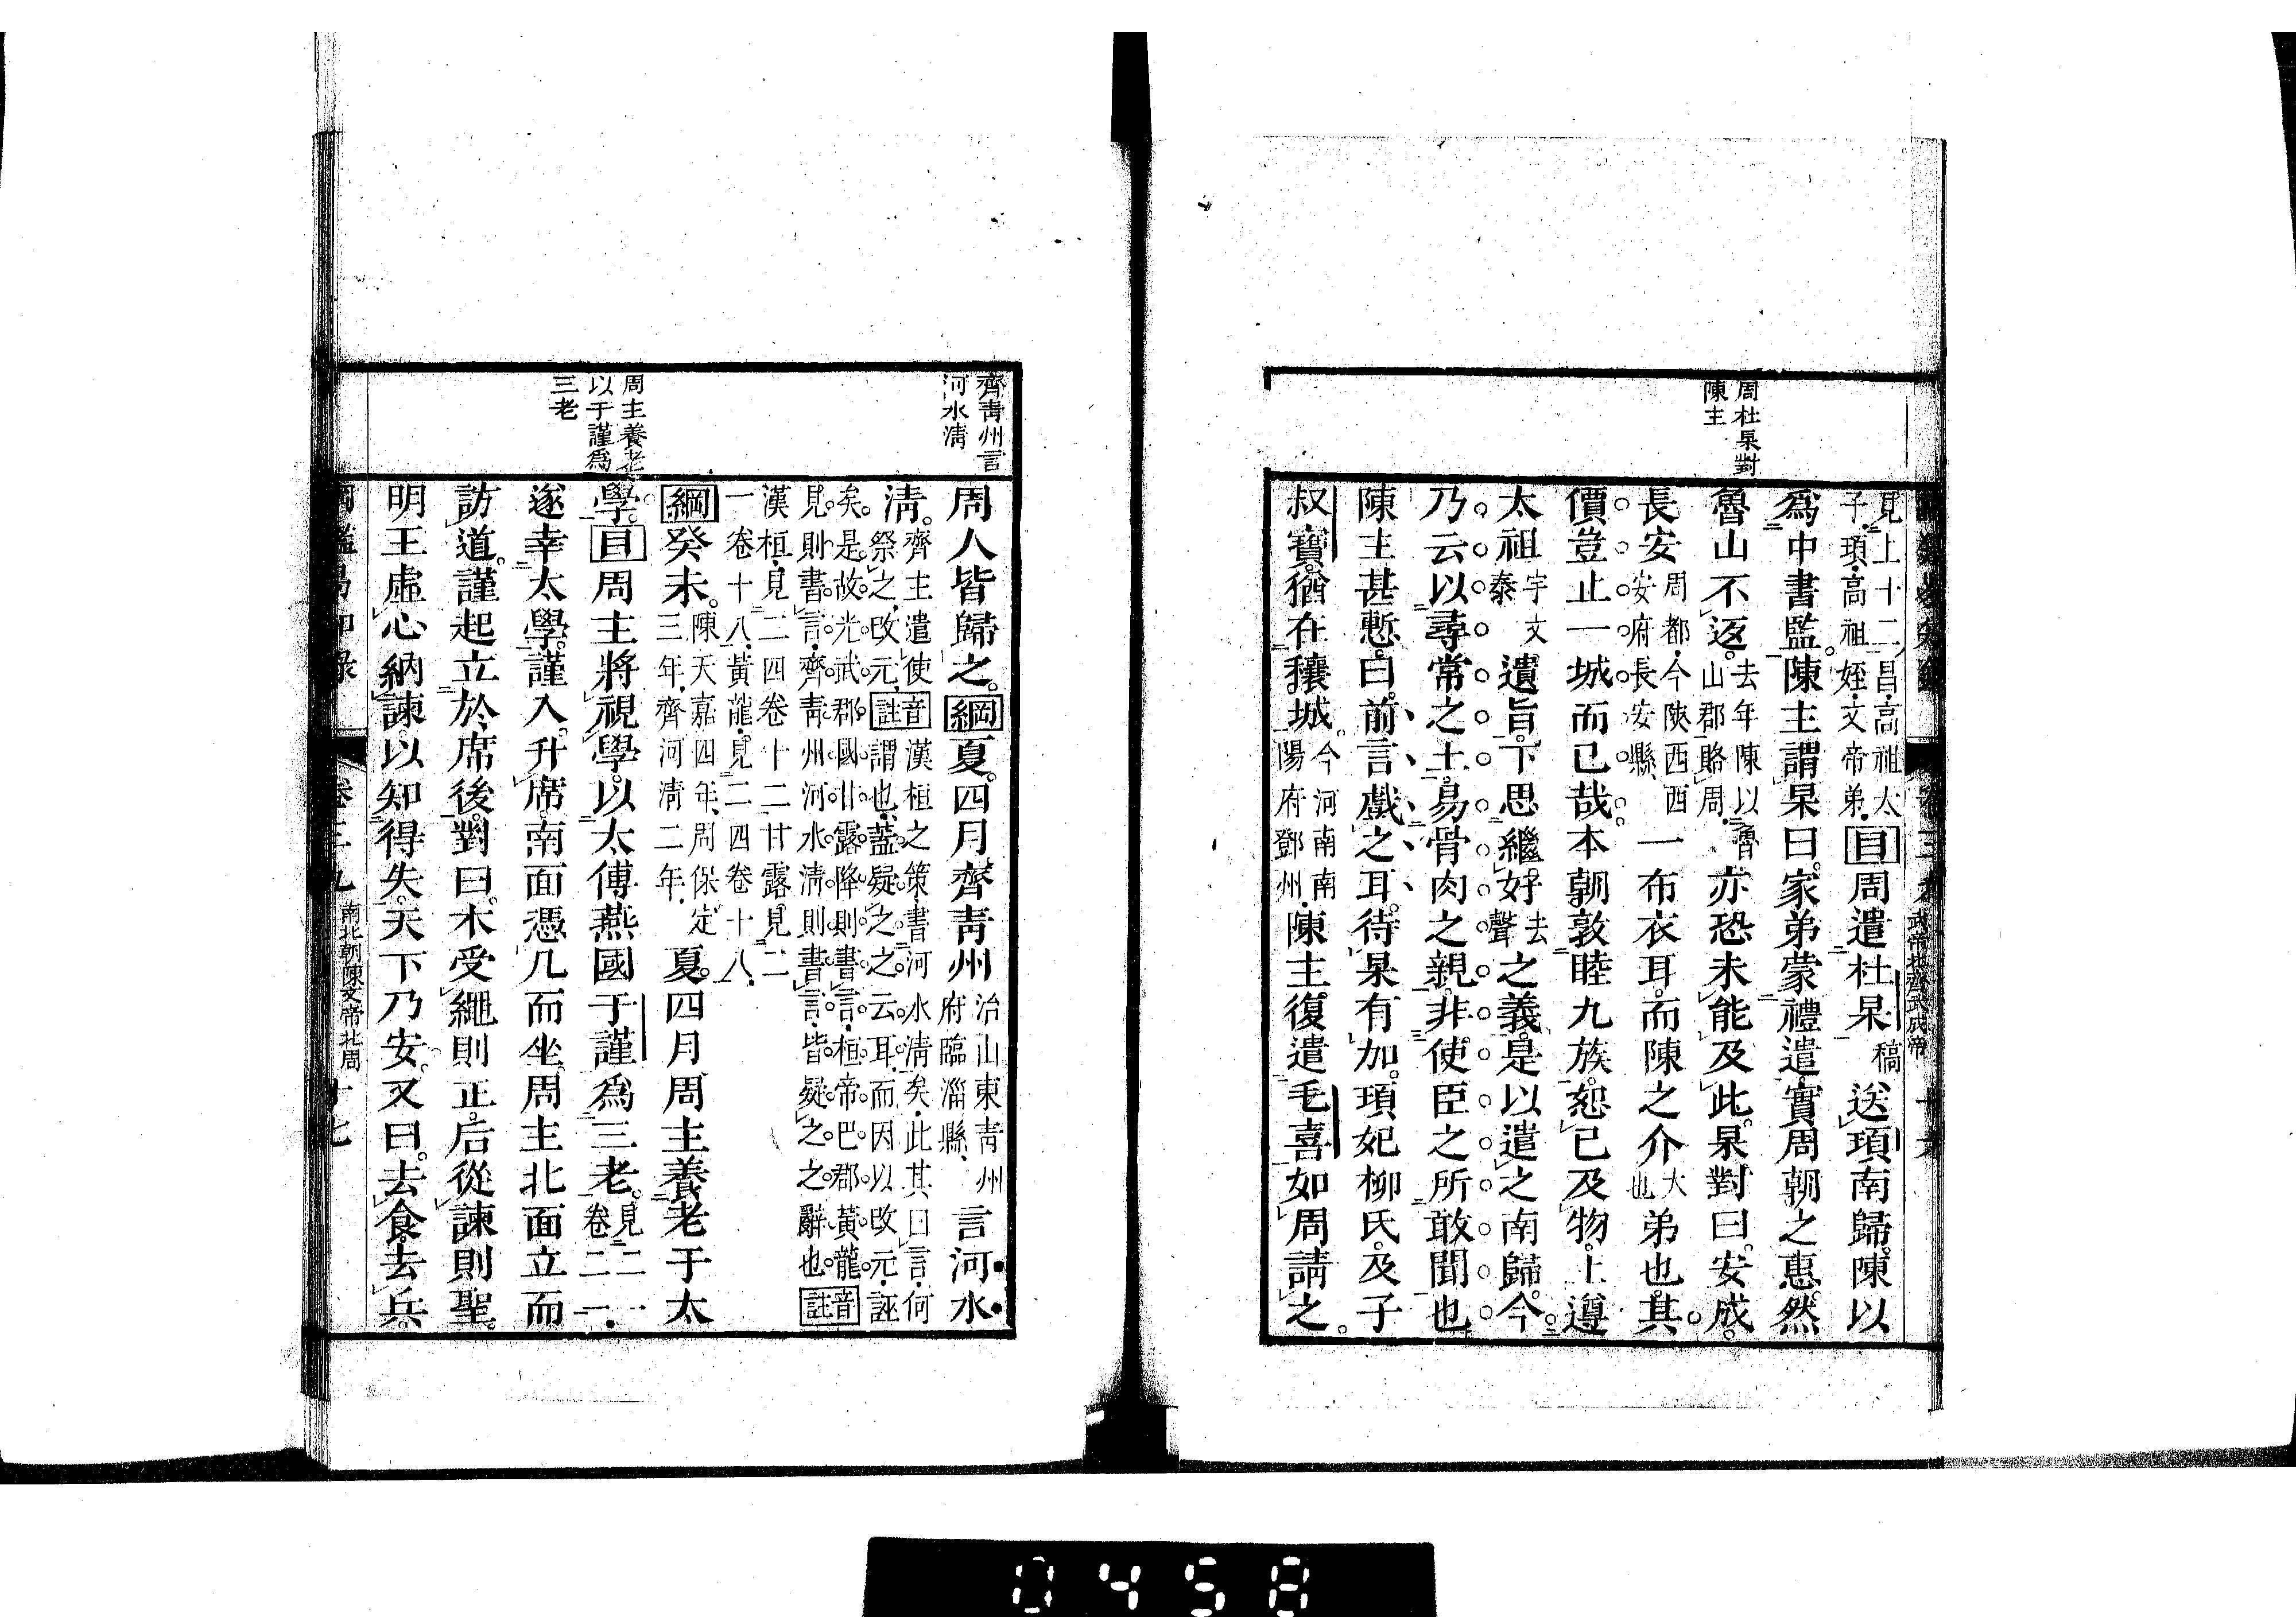 周杜杲對
陳主
見上十二昌高祖太
子頊高祖姪文帝弟目周遣杜杲稿送頊南歸陳以
爲中書監陳主謂杲曰家弟蒙禮遣實周朝之惠然
魯山不返去年陳以魯
山郡賂周亦恐未能及此杲對曰安成
長安周都今陝西西
安府長安縣一布衣耳而陳之介大
也弟也其
價豈止一城而已哉本朝敦睦九族恕已及物上遵
太祖宇文
泰遺旨下思繼好去
聲之義是以遣之南歸今
乃云以尋常之土易骨肉之親非使臣之所敢聞也
陳主甚慙曰前言戲之耳待杲有加頊妃柳氏及子
叔寶猶在穰城今河南南
陽府鄧州陳主復遣毛喜如周請之
齊靑州言
河水淸
周主養老
以于謹爲
三老
周人皆歸之綱夏四月齊靑州治山東靑州
府臨淄縣言河水
淸齊主遣使
祭之改元音
註漢桓之策書河水淸矣此其曰言何
謂也蓋疑之之云耳而因以改元誣
矣是故光武郡國甘露降則書言桓帝巴郡黃龍
見則書言齊靑州河水淸則書言皆疑之之辭也音
註
漢桓見二四卷十二甘露見二
一卷十八黃龍見二四卷十八
綱癸未陳天嘉四年周保定
三年齊河淸二年夏四月周主養老于太
學目周主將視學以太傅燕國于謹爲三老見二一
卷二一
遂幸太學謹入升席南面憑几而坐周主北面立而
訪道謹起立於席後對曰木受繩則正后從諫則聖
明王虛心納諫以知得失天下乃安又曰去食去兵
卷三九 南北朝陳文帝北周 十七
0458